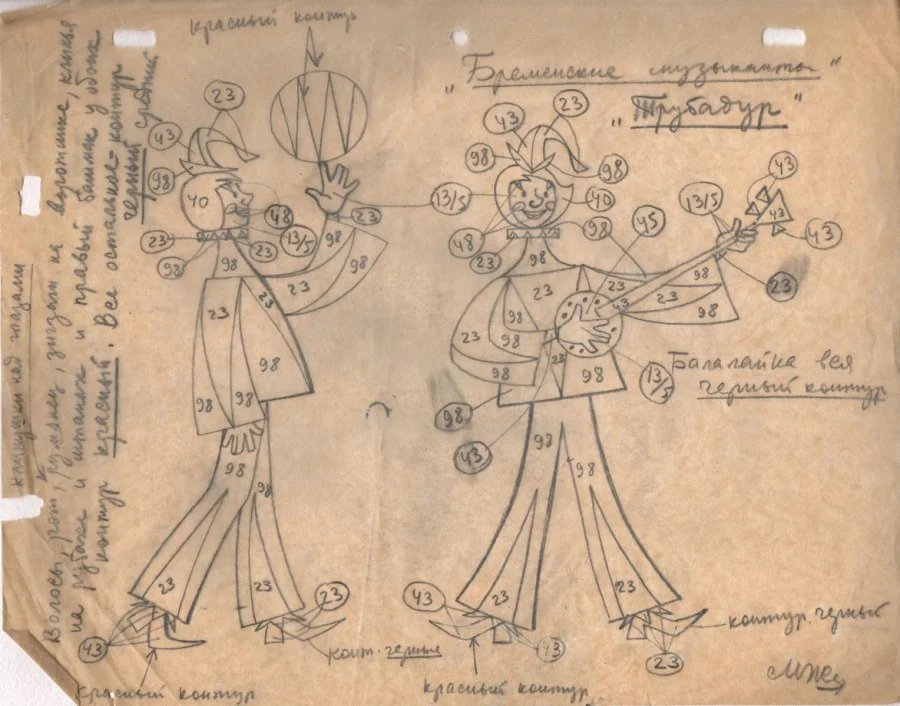 красный контур
"Бременские музыканты"
"Трубадур"
23
43
98
40
48
13/5
23
23
23
98
98
98
23
23
98
23
98
98
98
98
98
23
23
23
43
конт. черный
красный контур
43
23
98
98
13/5
40
98
48
23
45
13/5
43
43
43
23
98
23
98
98
23
43
23
98
98
98
23
98
13/5
98
43
Балалайка вся
черный контур
98
98
23
23
43
43
23
контур черный
красный контур
МЖ
Волосы, рот, румянец, зигзаги на воротнике, клинья
на рубахе и штанах и правый башмак у обоих
контур красный. Все остальное - контур
черный средний
над глазами